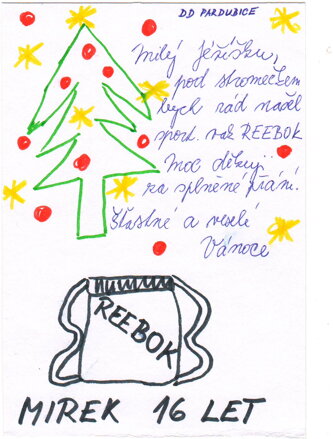 DD PARDUBICE
Milý Ježíšku,
pod stromečkem
bych rád našel
sport. vak REEBOK
Moc děkuji
za splněné přání.
Šťastné a veselé
Vánoce
REEBOK
MIREK 16 LET